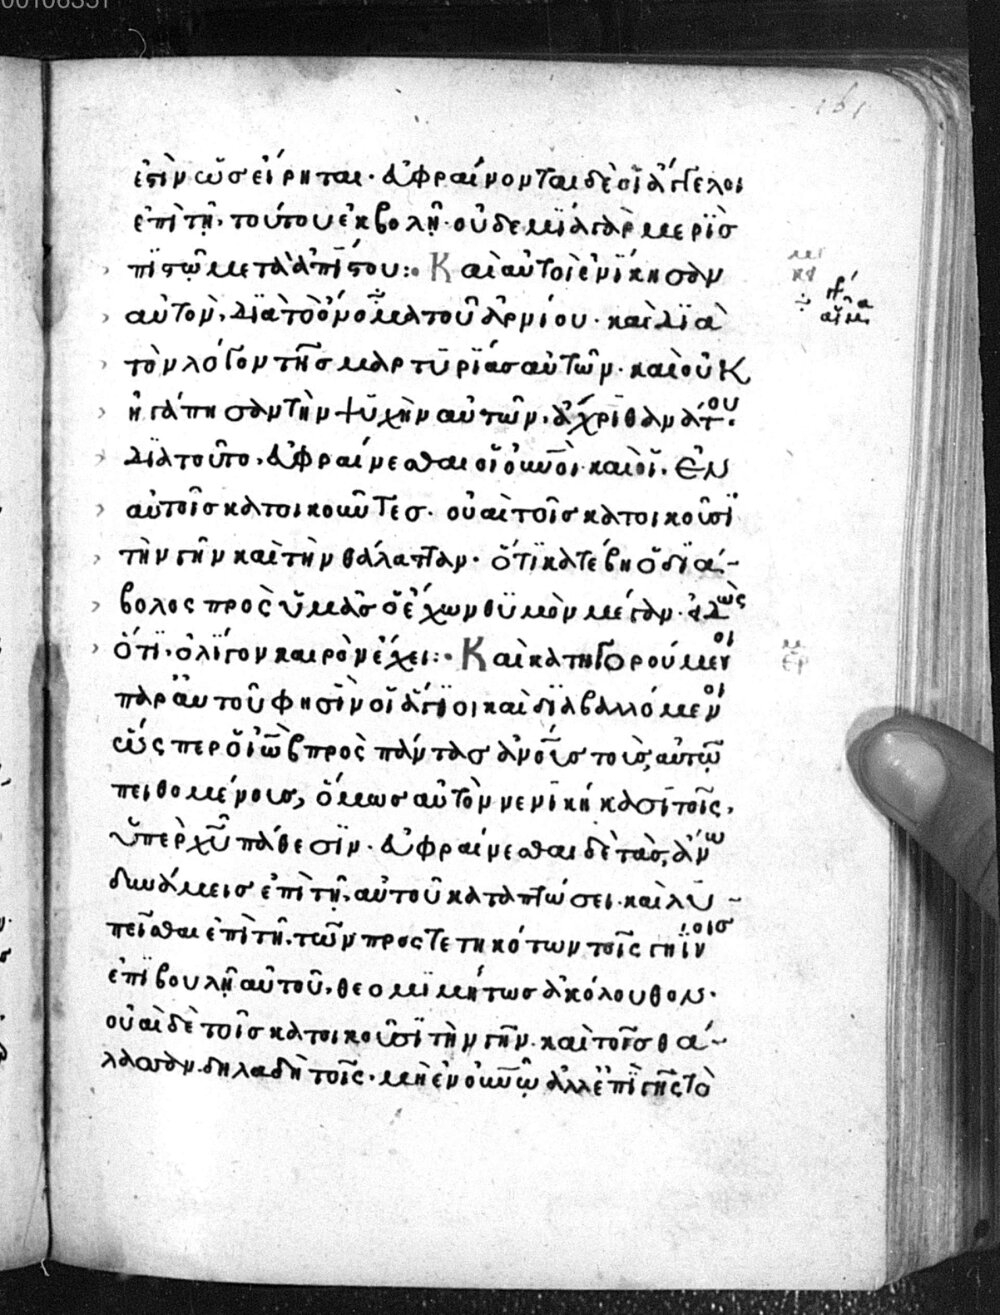 00108351
161
ἐστὶν ὡς εἴρηται· εὐφραίνονται δὲ οἱ ἄγγελοι
ἐπὶ τῇ τούτου ἐκβολῇ· οὐδεμία γὰρ μερὶς
πιστῶ μετὰ ἀπίστου:· Καὶ αὐτοὶ ἐνίκησαν
αὐτὸν, διὰ τὸ ὄνομα τοῦ ἀρνίου· καὶ διὰ
τὸν λόγον τῆς μαρτυρίας αὐτῶν· καὶ οὐκ
ἠγάπησαν τὴν ψυχὴν αὐτῶν, ἄχρι θανάτου·
διὰ τοῦτο, εὐφραίνεσθαι οἱ οὐνοὶ καὶ οἱ ἐν
αὐτοῖς κατοικοῦντες· οὐαὶ τοῖς κατοικοῦσι
τὴν γῆν καὶ τὴν θάλατταν· ὅτι κατέβη ὁ διά-
βολος πρὸς ὑμᾶς ὁ ἔχων θυμὸν μέγαν· εἰδὼς
ὅτι ὀλίγον καιρὸν ἔχει:· Καὶ κατηγορούμενοι
παρ αὐτοῦ φησὶν οἱ ἅγιοι καὶ διαβαλλόμενοι
ὥσπερ ὁ ἰὼβ πρὸς πάντας ἀνοὺς τοὺς αὐτῷ
πειθομένους, ὅμως αὐτὸν νενικήκασι τοῖς,
ὑπὲρ χῦ πάθεσιν· εὐφραίνεσθαι δὲ τὰς, ἄνω
δυνάμεις ἐπὶ τῇ αὐτοῦ καταπτώσει· καὶ λυ-
πεῖσθαι ἐπὶ τῇ τῶν προστετηκότων τοῖς γηΐνοις
ἐπιβουλῇ αὐτοῦ, θεομιμήτως ἀκόλουθον·
οὐαὶ δὲ τοῖς κατοικοῦσι τὴν γῆν καὶ τοῖς θά-
λασσαν· δηλαδὴ τοῖς μὴ ἐν οὐνῷ ἀλλ ἐπὶ γῆς τὸ